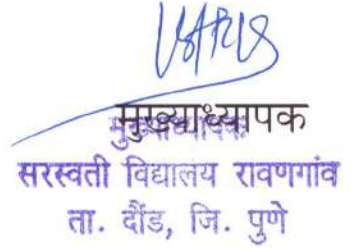 मुख्याध्यापक
मुख्याध्यापक
सरस्वती विद्यालय रावणगांव
ता. दौंड, जि. पुणे